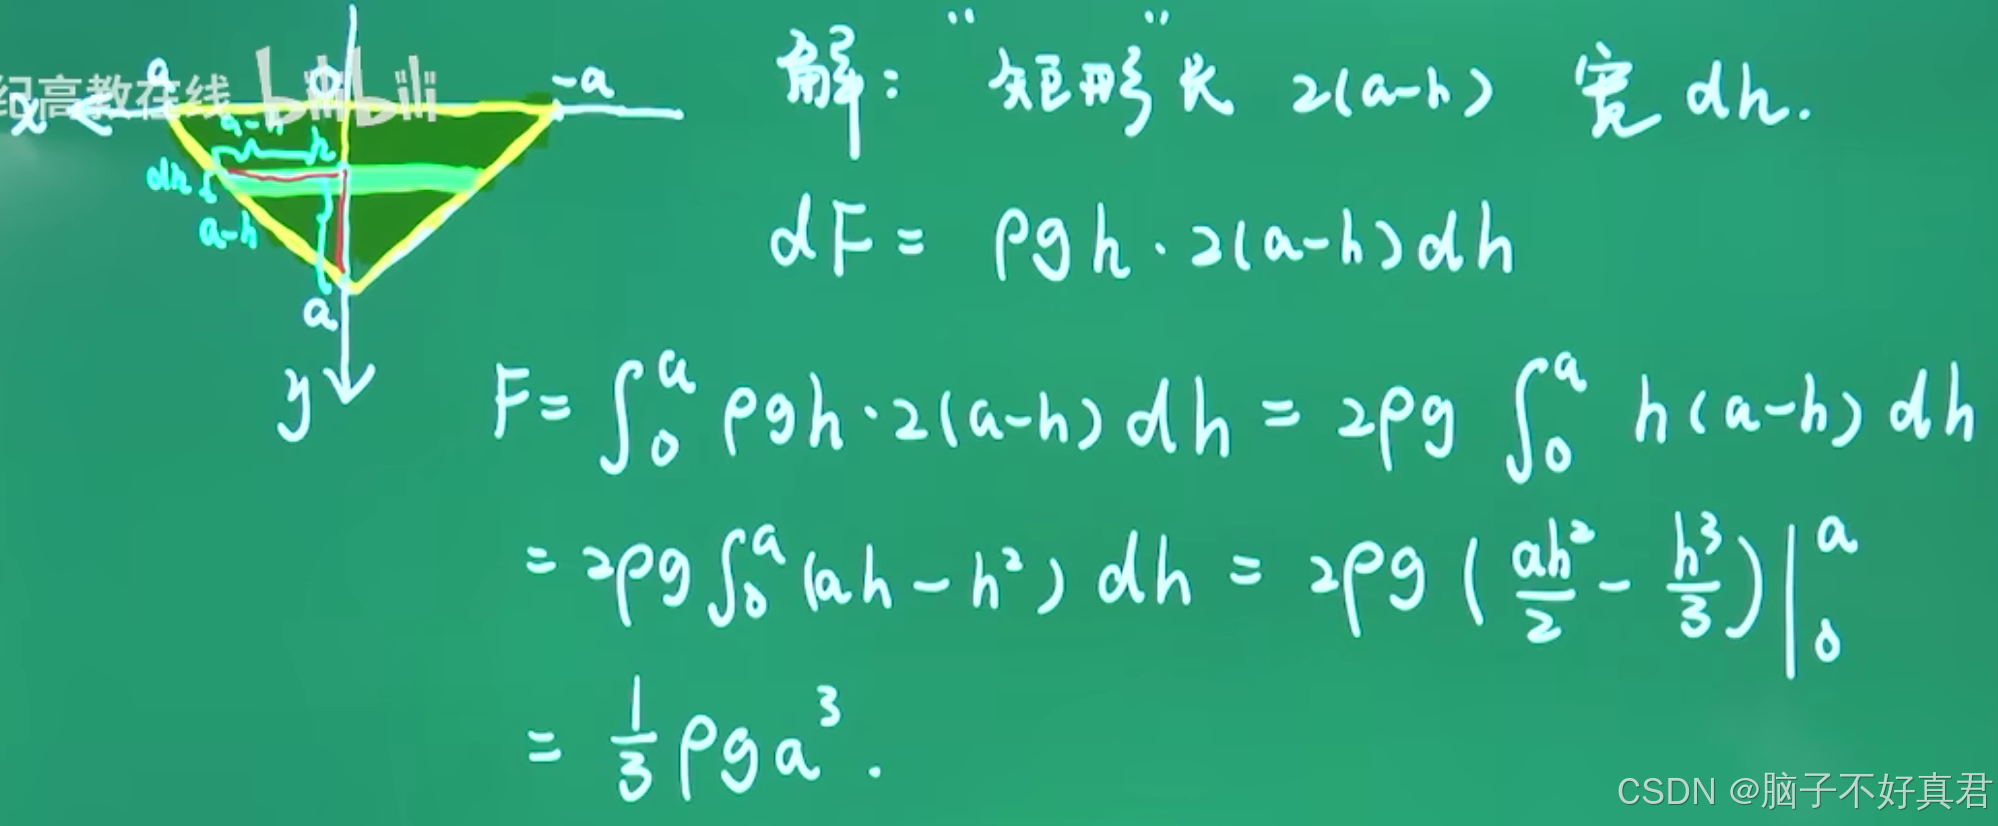 纪高教在线 bilibili
a O -a
x
a-h h
dh
a-h
a
y
解：“矩形”长 2(a-h) 宽 dh.
dF = ρgh · 2(a-h)dh
F = ∫₀ᵃ ρgh · 2(a-h) dh = 2ρg ∫₀ᵃ h(a-h) dh
= 2ρg ∫₀ᵃ (ah - h²) dh = 2ρg (ah²/2 - h³/3)|₀ᵃ
= 1/3 ρga³.
CSDN @脑子不好真君